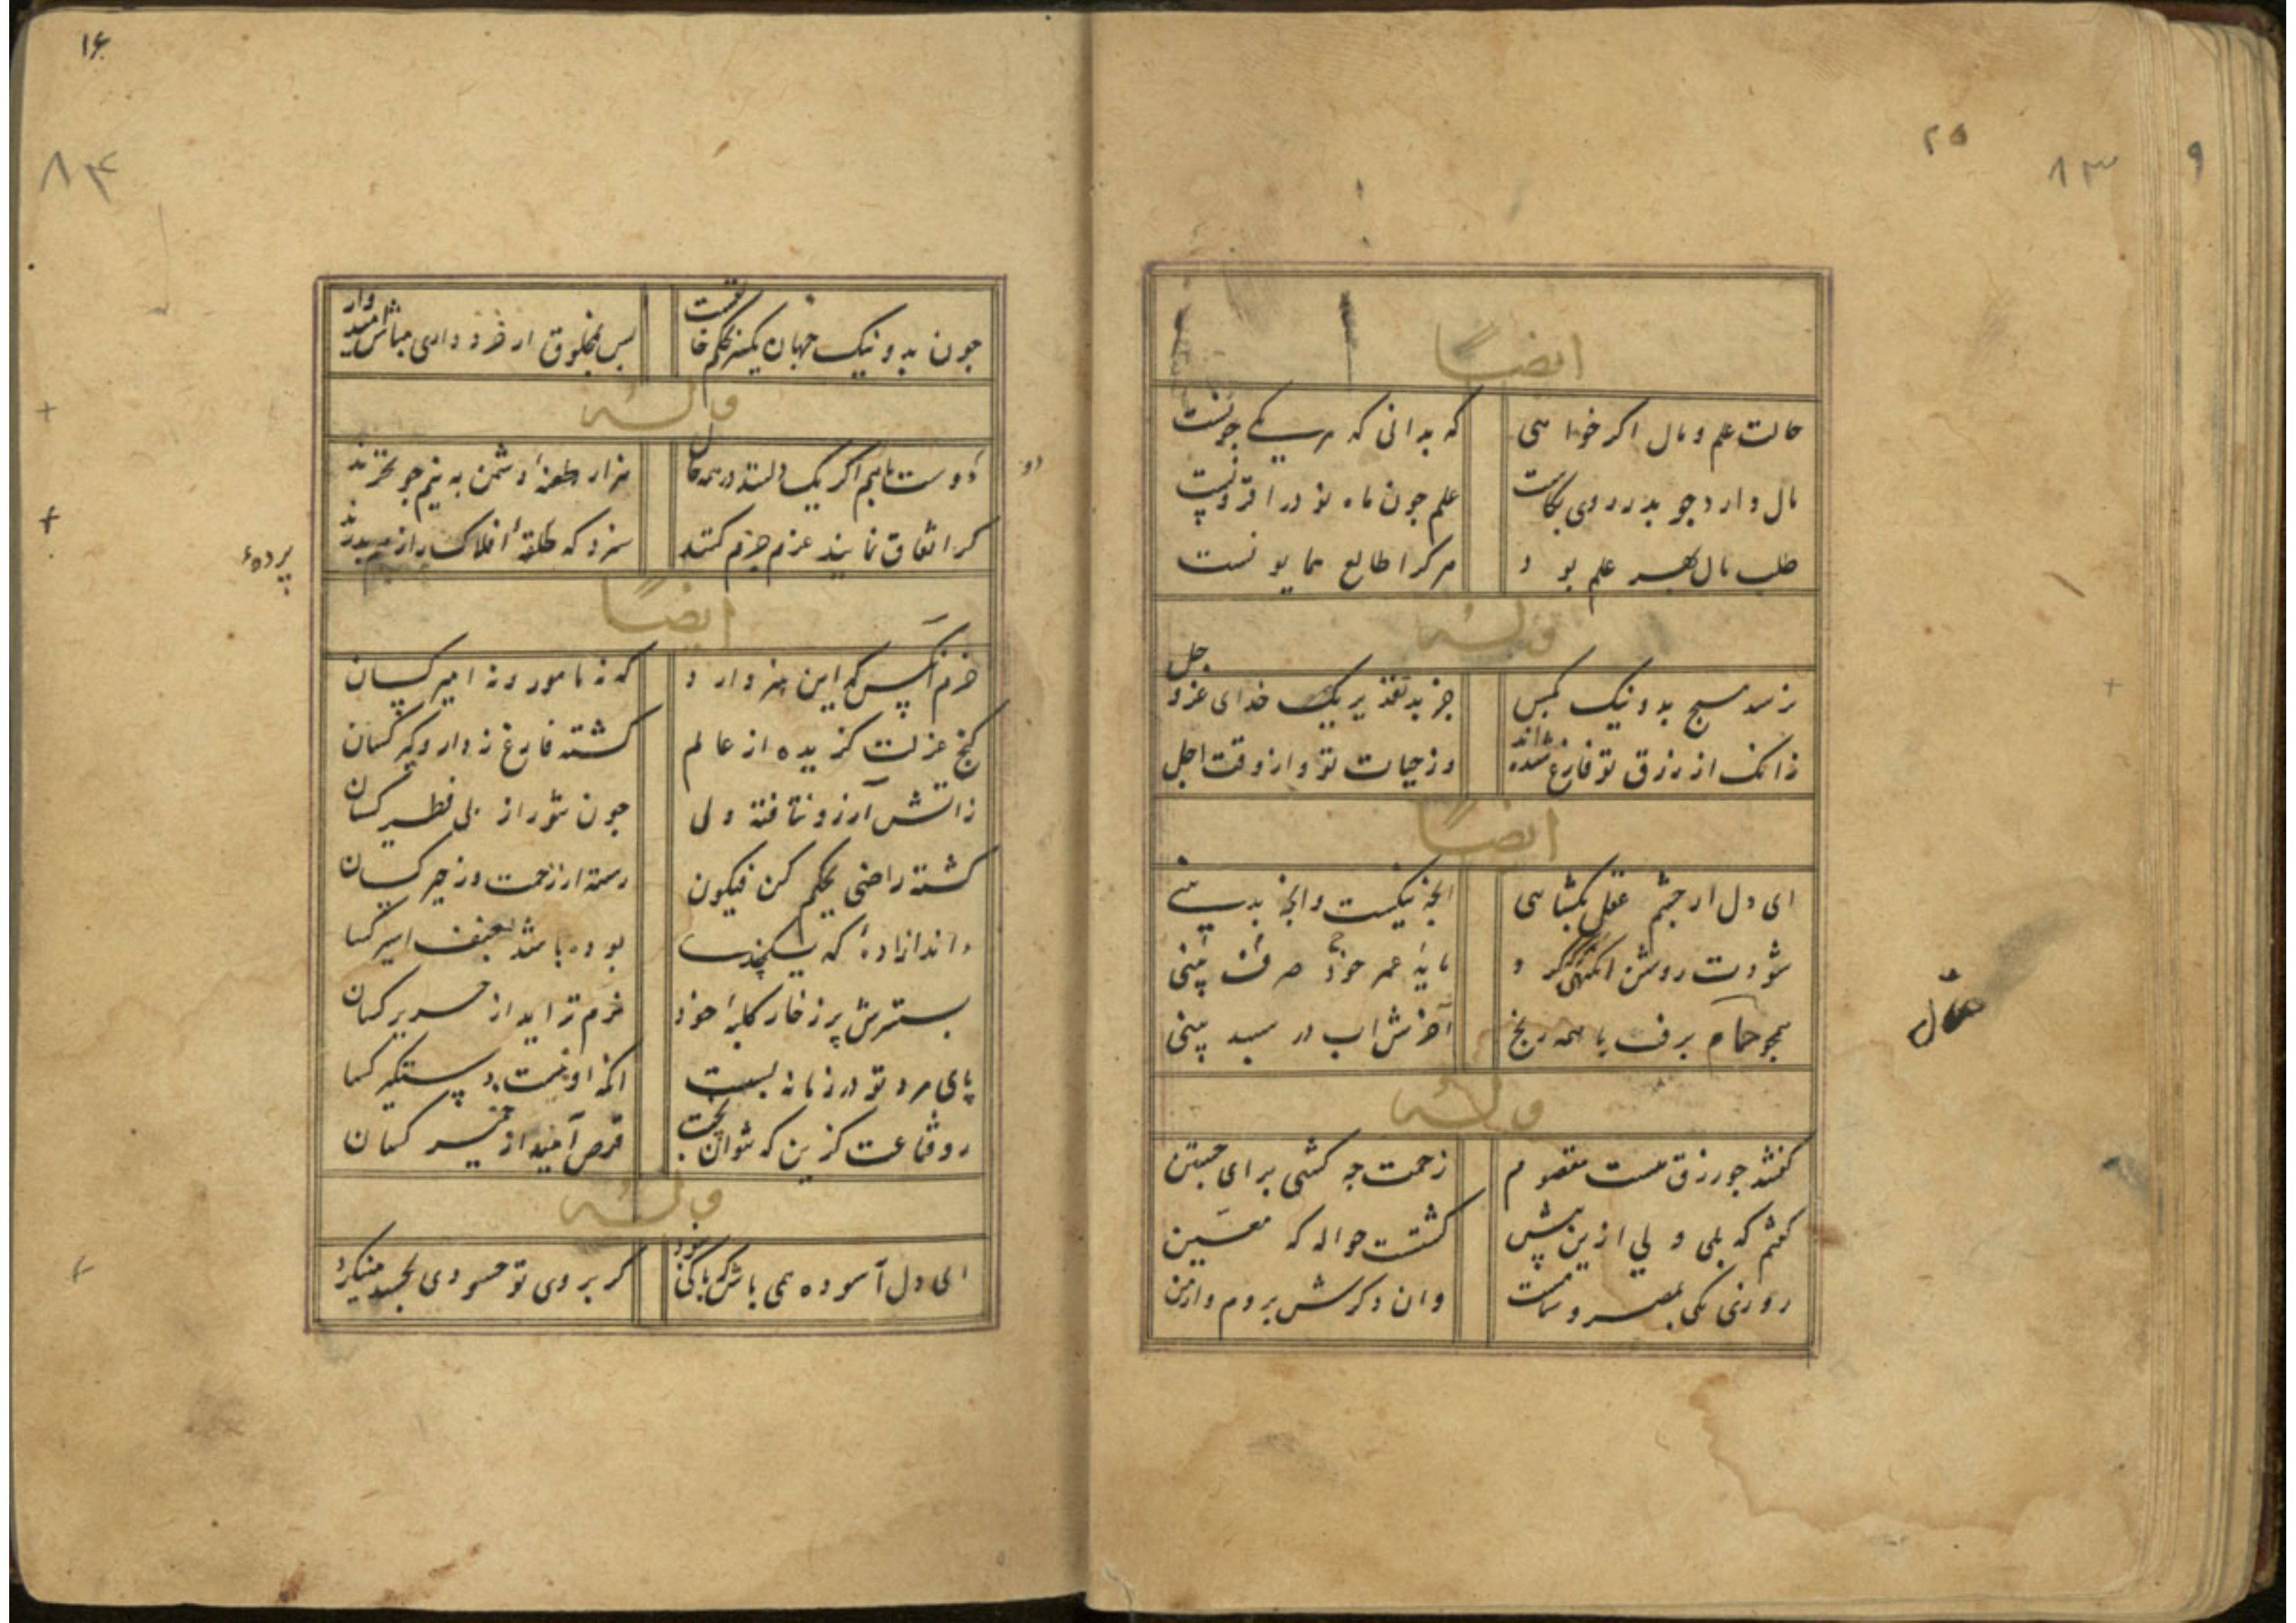 ۲۵
۸۳
۹
ایضاً
حالت علم و مال اکر خواهی که بدانی که هر یکی چونست
مال دارد چو بدر روی بکاست علم چون ماه نو در افزونیست
طلب مال بهر علم بود هرکرا طالع همایونست
وله
نرسد هیچ بد و نیک بکس جز بتقدیر یک خدای عز و جل
زانک از رزق تو فارغ شده‌اند وز حیات تو و از وقت اجل
ایضاً
ای دل ار چشم عقل بکشایی انچه نیکست وانچه بد بینی
شودت روشن مایهٔ عمر خود صرف بینی
همچو حمال برف با همه رنج آخرش آب در سبد بینی
حمال
وله
کفتند چو رزق هست مقسوم زحمت چه کشی برای جستن
کفتم که بلی ولی ازین پیش کشتست حواله که معین
روزی یکی بمصر و شامست وان دکرش بروم و ارمن
۱۶
۸۴
چون بد و نیک جهان یکسر بحکم خالقست پس بمخلوق ار خرد داری مباش امیدوار
وله
دو دوست باهم اکر یکدلند در همه حال هزار طعنهٔ دشمن به نیم جو نخرند
دو
کر اتفاق نمایند عزم جزم کنند سزد که حلقهٔ افلاک را ز هم بدرند
پردهٔ
ایضاً
خرم آنکس که این هنر دارد که نه مامور و نه امیر کسان
کنج عزلت کزیده از عالم کشته فارغ ز دار و کیر کسان
زاتش آرزو نتافته ولی چون تنور از پی فطیر کسان
کشته راضی بحکم کن فیکون رسته از زحمت و زحیر کسان
داند ازادهٔ که بوده باشد بعنف اسیر کسان
بسترش پر ز خار کلبهٔ خود نرم تر آید از حریر کسان
پای مرد تو در زمانه بسست انکه او نیست دستکیر کسان
رو قناعت کزین که نتوان پخت قرص امید از خمیر کسان
وله
ای دل آسوده همی باش که باکی نبود کر بروی تو حسودی بحسد مینکرد